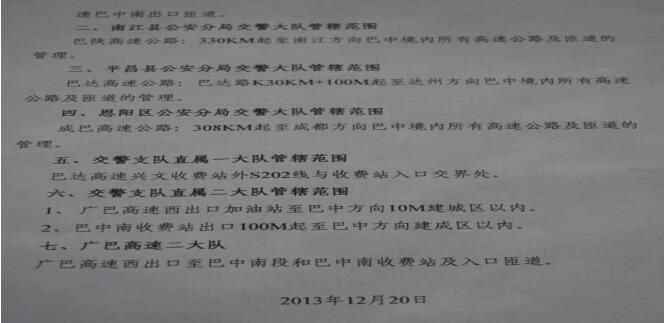 速巴中南出口匝道。
二、南江县公安分局交警大队管辖范围
巴陕高速公路：330KM起至南江方向巴中境内所有高速公路及匝道的
管理。
三、平昌县公安分局交警大队管辖范围
巴达高速公路：巴达路K30KM+100M起至达州方向巴中境内所有高速
公路及匝道的管理。
四、恩阳区公安分局交警大队管辖范围
成巴高速公路：308KM起至成都方向巴中境内所有高速公路及匝道的
管理。
五、交警支队直属一大队管辖范围
巴达高速兴文收费站外S202线与收费站入口交界处。
六、交警支队直属二大队管辖范围
1、广巴高速西出口加油站至巴中方向10M建城区以内。
2、巴中南收费站出口100M起至巴中方向建成区以内。
七、广巴高速二大队
广巴高速西出口至巴中南段和巴中南收费站及入口匝道。
2013年12月20日